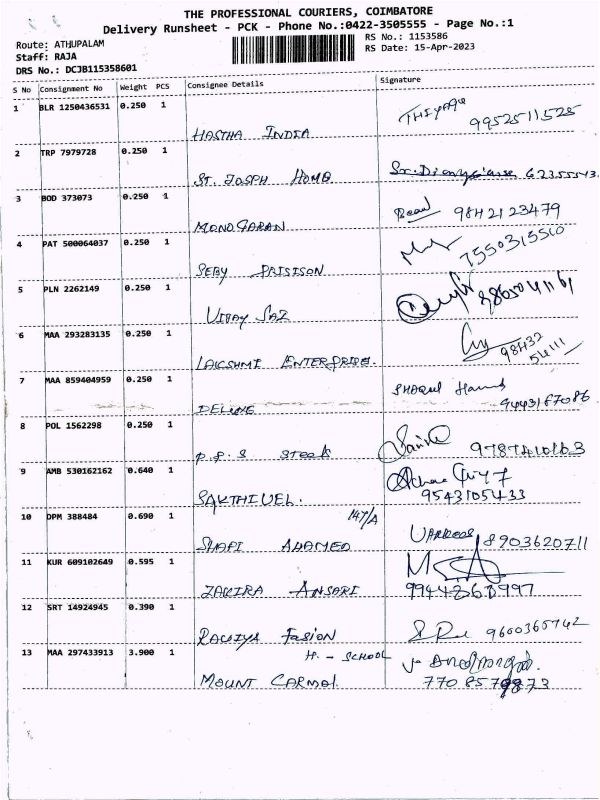 THE PROFESSIONAL COURIERS, COIMBATORE
Delivery Runsheet - PCK - Phone No.:0422-3505555 - Page No.:1
Route: ATHUPALAM
RS No.: 1153586
Staff: RAJA
RS Date: 15-Apr-2023
DRS No.: DCJB115358601
S No Consignment No Weight PCS Consignee Details Signature
1 BLR 1250436531 0.250 1
THIYAGU 9952511525
HASTHA INDIA
2 TRP 7979728 0.250 1
ST. JOSPH HOMB
3 BOD 373073 0.250 1
9842123479
MONOGARAN
4 PAT 500064037 0.250 1
7550315510
SEBY PRISISON
5 PLN 2262149 0.250 1
VIJAY SAZ
6 MAA 293283135 0.250 1
98432
54111
LAKSHMI ENTERPRISE.
7 MAA 859404959 0.250 1
9443187086
DELUXE
8 POL 1562298 0.250 1
9787410163
P.P.S STEEL
9 AMB 530162162 0.640 1
9543105433
SAKTHIVEL.
10 DPM 388484 0.690 1
147/A
8903620711
SHAFI AHAMED
11 KUR 609102649 0.595 1
ZAKIRA ANSARI
12 SRT 14924945 0.390 1
9600365742
FASION
13 MAA 297433913 3.900 1
H. - SCHOOL
MOUNT CARMAL